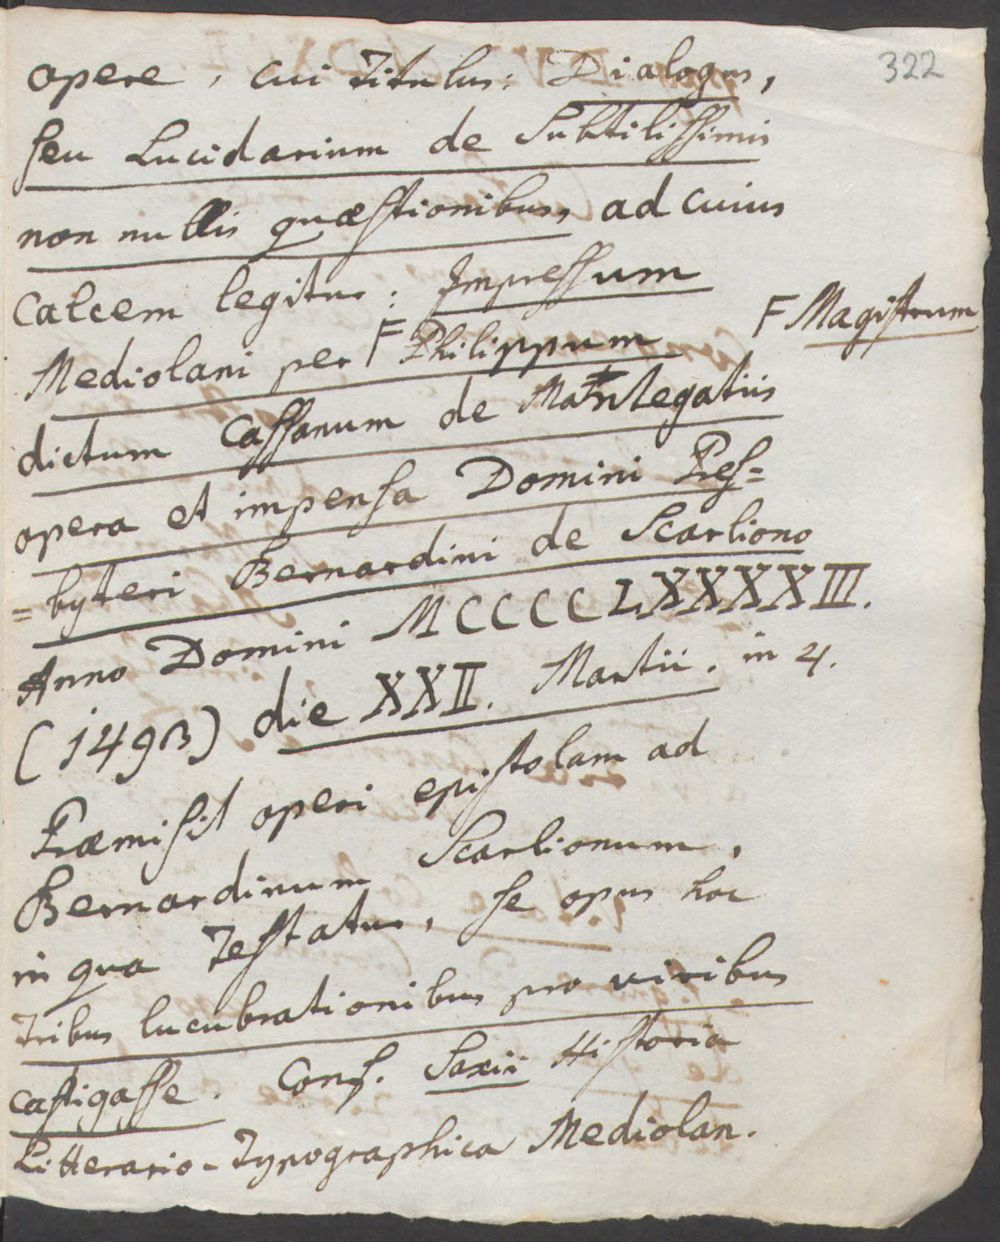 322
opere, cui titulus: Dialogus,
seu Lucidarium de Subtilissimis
non nullis quæstionibus, ad cuius
calcem legitur: Impressum
Mediolani per F Philippum F Magistrum
dictum Cassanum de Mantegatiis
opera et impensa Domini Pres=
=byteri Bernardini de Scarliono
Anno Domini MCCCCLXXXXIII.
(1493) die XXII. Martii. in 4.
Præmisit operi epistolam ad
Bernardinum Scarlionum,
in qua testatur, se opus hoc
tribus lucubrationibus pro viribus
castigasse. Conf. Saxii Historia
Litterario-Typographica Mediolan.